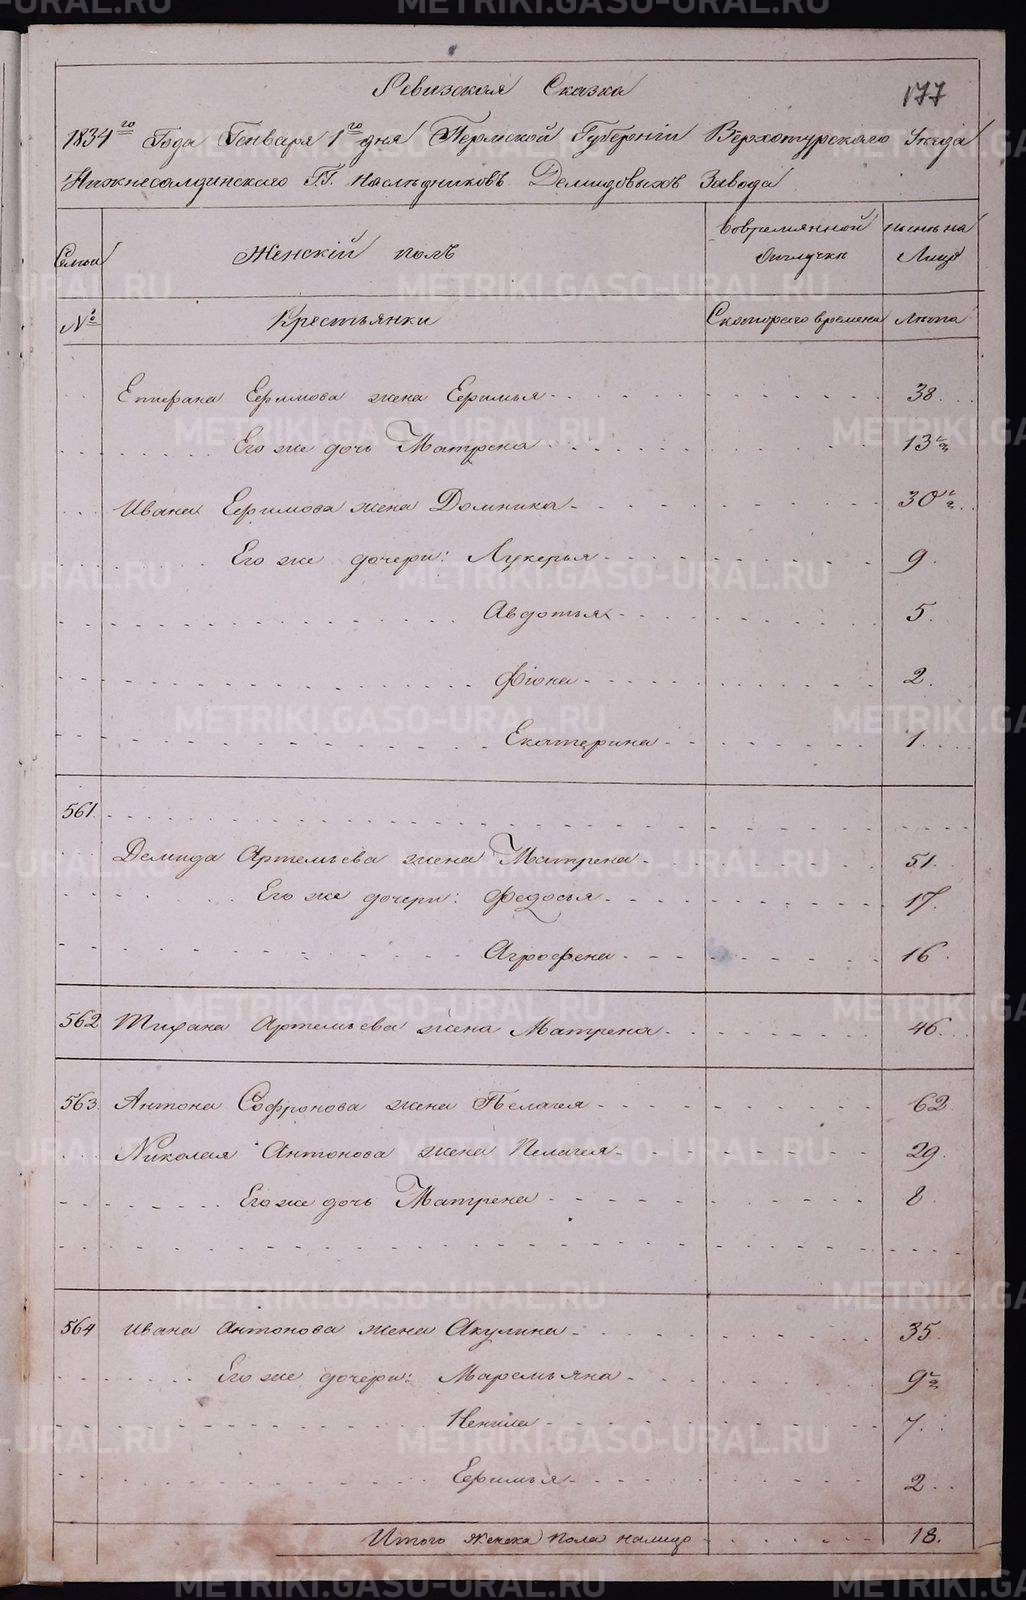 177
Ревизская Сказка
1834го Года Генваря 1го дня Пермской Губерніи Верхотурскаго Уѣзда
Нижнесалдинскаго Г.Г. Наслѣдниковъ Демидовыхъ Завода
Семьи Женскій полъ Вовремянной Отлучкѣ нынѣ на Лицо
№ Крестьянки Скотораго времени Лѣта
Епифана Ефимова жена Ефимья 38
Его же дочь Матрена 13
Ивана Ефимова жена Домника 30
Его же дочери: Лукерья 9
Авдотья 5
Фіона 2
Екатерина 1
561
Демида Артемьева жена Матрена 51
Его же дочери: Федосья 17
Агрофена 16
562 Тихана Артемьева жена Матрена 46
563 Антона Софронова жена Пелагея 62
Николая Антонова жена Пелагея 29
Его же дочь Матрена 8
564 Ивана Антонова жена Акулина 35
Его же дочери: Маремьяна 9
Ненила 7
Ефимья 2
Итого Женска пола налицо 18.
METRIKI.GASO-URAL.RU